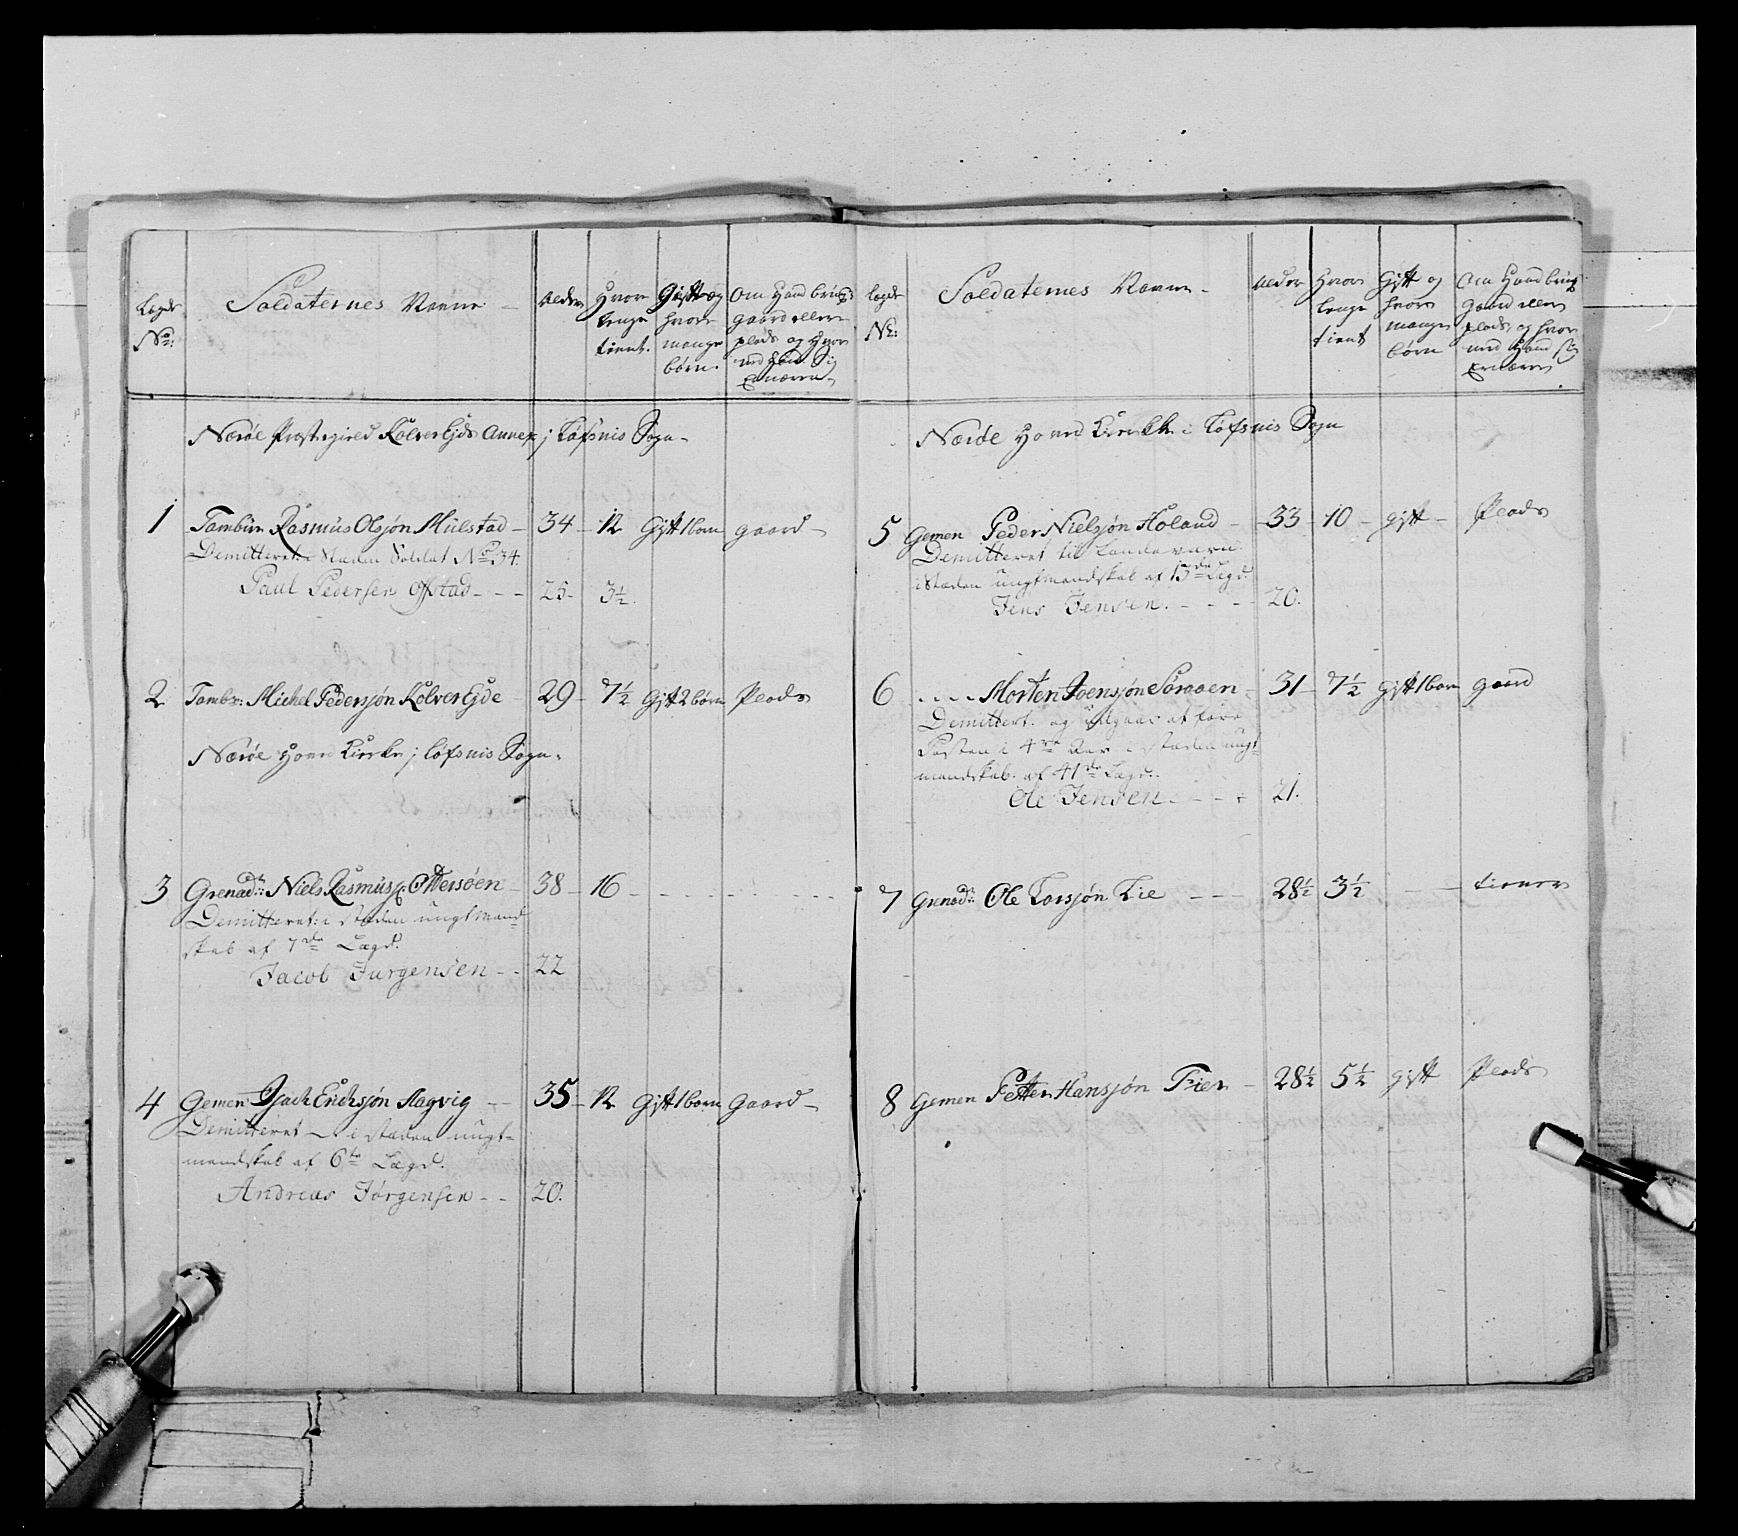 Legds No:
Soldaternes Navne
Alder
Hvor lenge tient.
Gift og hvor mange børn.
Om Hand brug gaard eller plads og hvor med Hand Sig Ernærer
Nærøe Præstegield Kolver Ejds Annex j Løfsnis Sogn
1 Tambùr Rasmùs Olsjøn Mùlstad 34 12 Gift 1 barn gaard
Demitteret i Stæden Soldat No 34.
Paul Pedersen Ofstad 25 3½
2 Tambr: Michel Pedersjøn Kolver Ejde 29 7½ Gift 2 børn Plads
Nærøe Hoved Kirke j Løfsnis Sogn.
3 Grenadr: Niels Rasmusjø Ottersøen 38 16
Demitteret i stæden ungt mand-
skab af 7de Lægd.
Jacob Jurgensen 22
4 Gemen Isach Erichsjøn Aagvig 35 12 Gift 1 barn Gaard
Demitteret i stæden ungt-
mandskab af 6te Lægd.
Andreas Jørgensen 20.
Legds No:
Soldaternes Navne
Alder
Hvor lenge tient
Gift og hvor mange børn
Om Hand brug Gaard eller plads og hvor med Hand sig Ernærer
Nærøe Hoved Kirke i Løfsnis Sogn
5 Gemen Peder Nielsjøn Høland 33 10 gift Plads
Demitteret til Landeværn
i Stæden ungtmandskab af 13de Lægd.
Jens Jensen. 20.
6 Morten Joensjøn 31 7½ gift 1 barn gaard
Demittert. og udgaar at føre
Posten i 4re Aar i stæden ungt-
mandskab af 41de Lægd.
Ole Jensen 21.
7 Grenadr: Ole Larsjøn Lie 28½ 3½ tiener
8 Gemen Petter Hansjøn Fier 28½ 5½ gift Plads